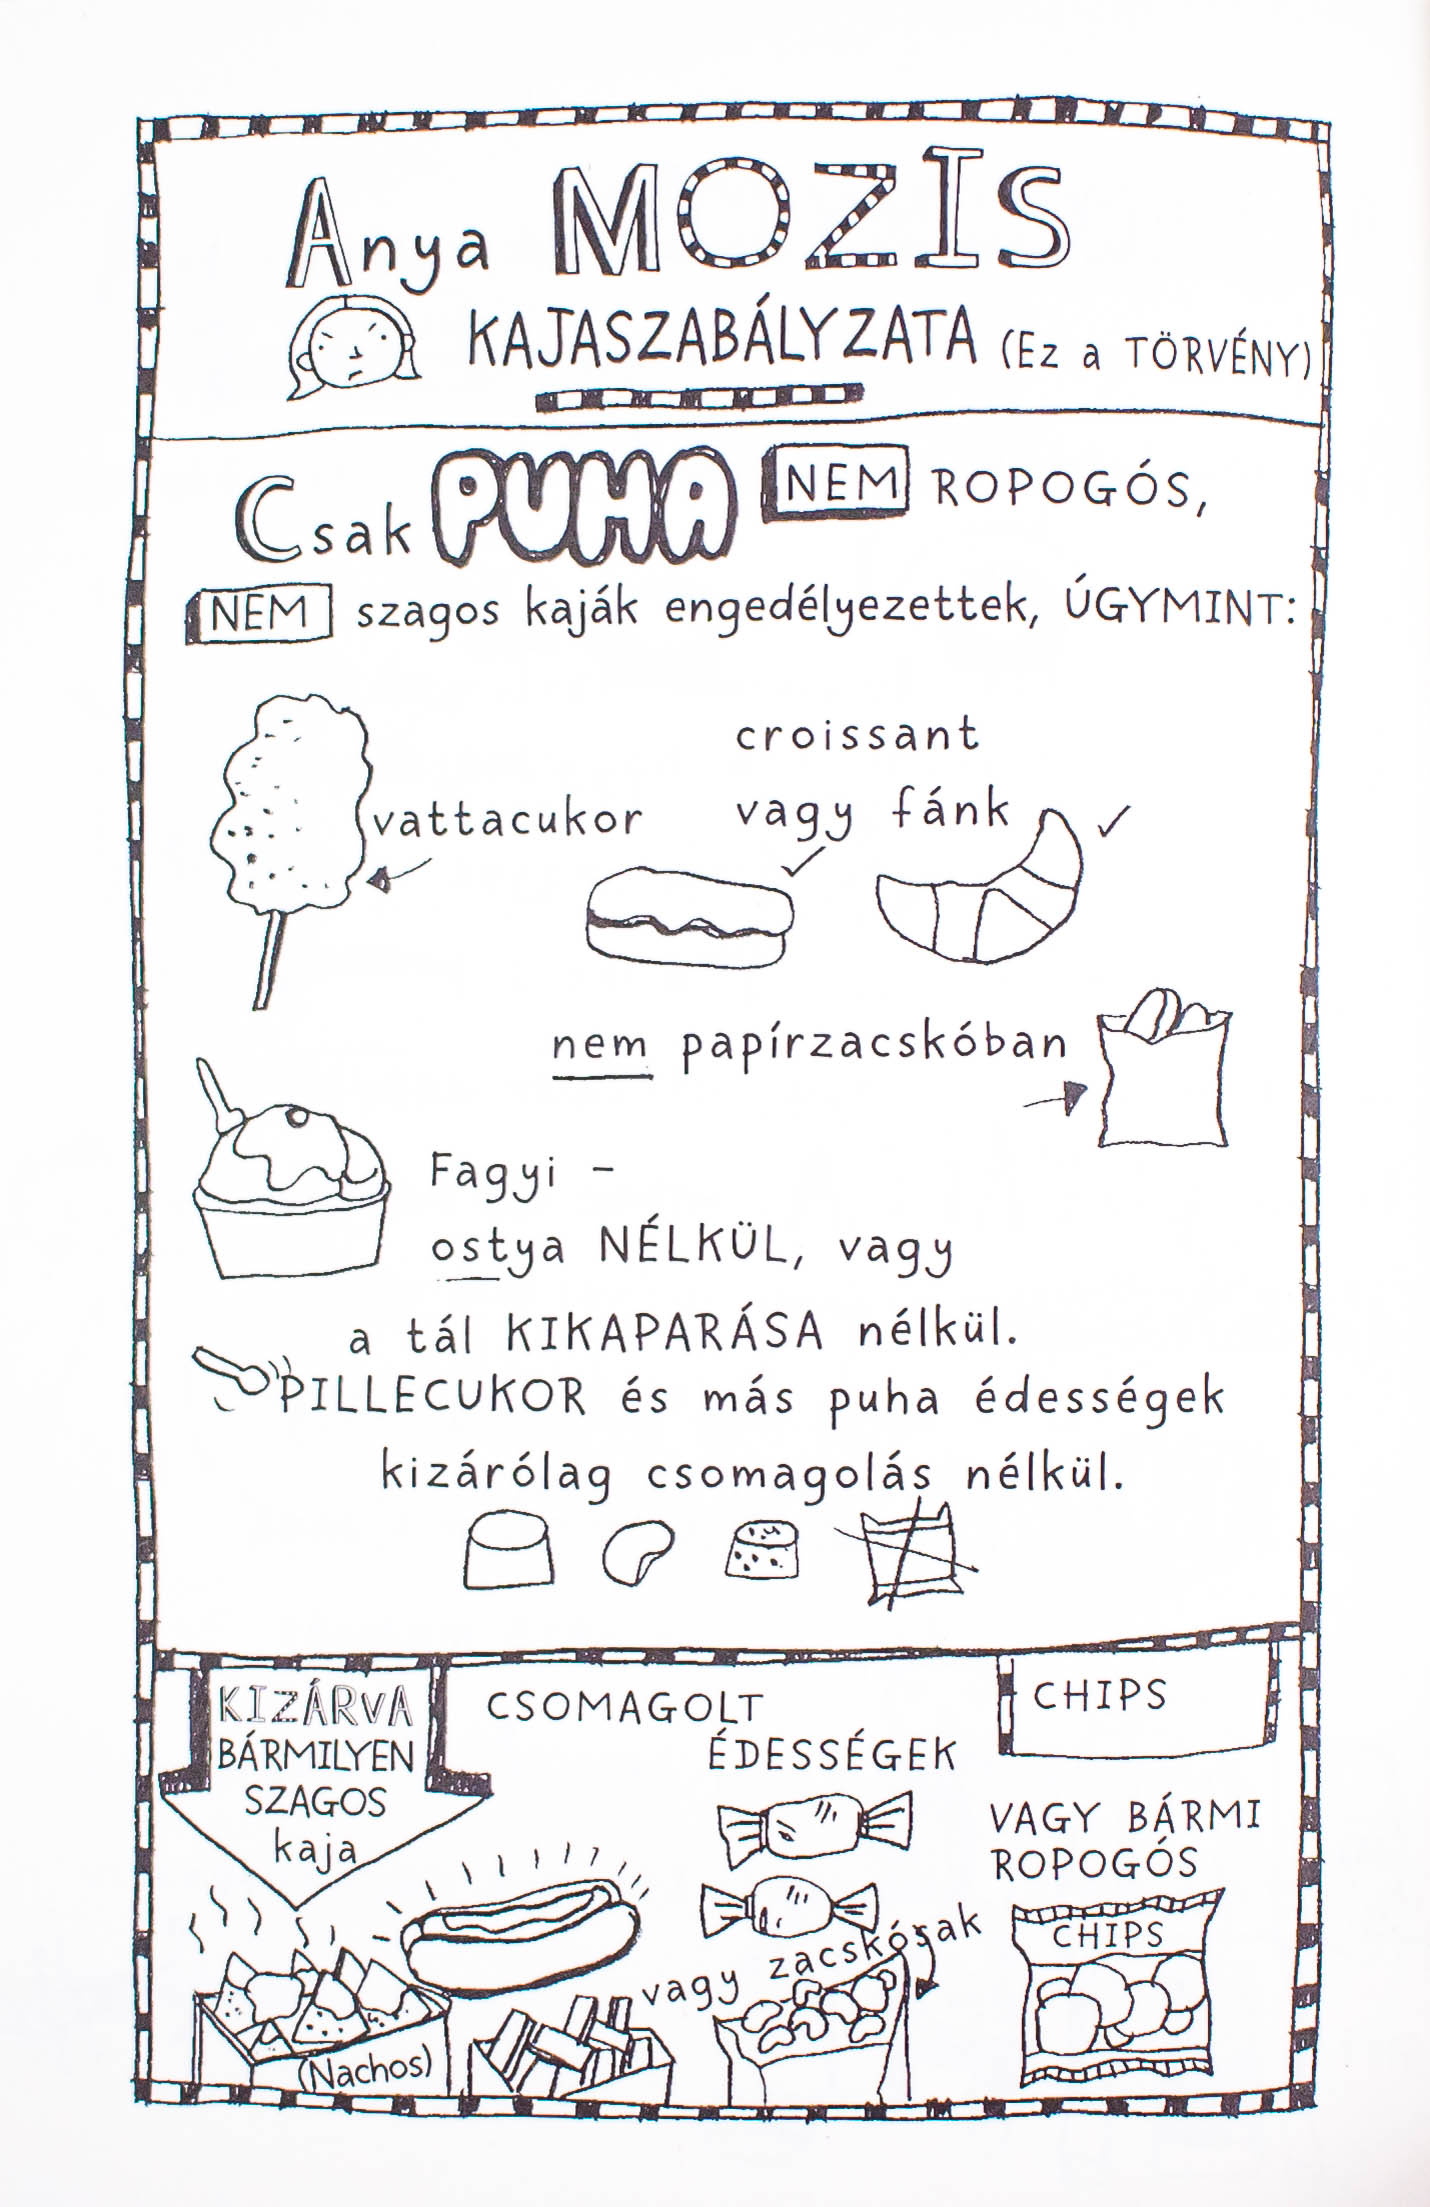 Anya MOZIS
KAJASZABÁLYZATA (Ez a TÖRVÉNY)
Csak PUHA NEM ROPOGÓS,
NEM szagos kaják engedélyezettek, ÚGYMINT:
vattacukor
croissant
vagy fánk
nem papírzacskóban
Fagyi -
ostya NÉLKÜL, vagy
a tál KIKAPARÁSA nélkül.
PILLECUKOR és más puha édességek
kizárólag csomagolás nélkül.
KIZÁRVA
BÁRMILYEN
SZAGOS
kaja
(Nachos)
CSOMAGOLT
ÉDESSÉGEK
vagy zacskósak
CHIPS
VAGY BÁRMI
ROPOGÓS
CHIPS